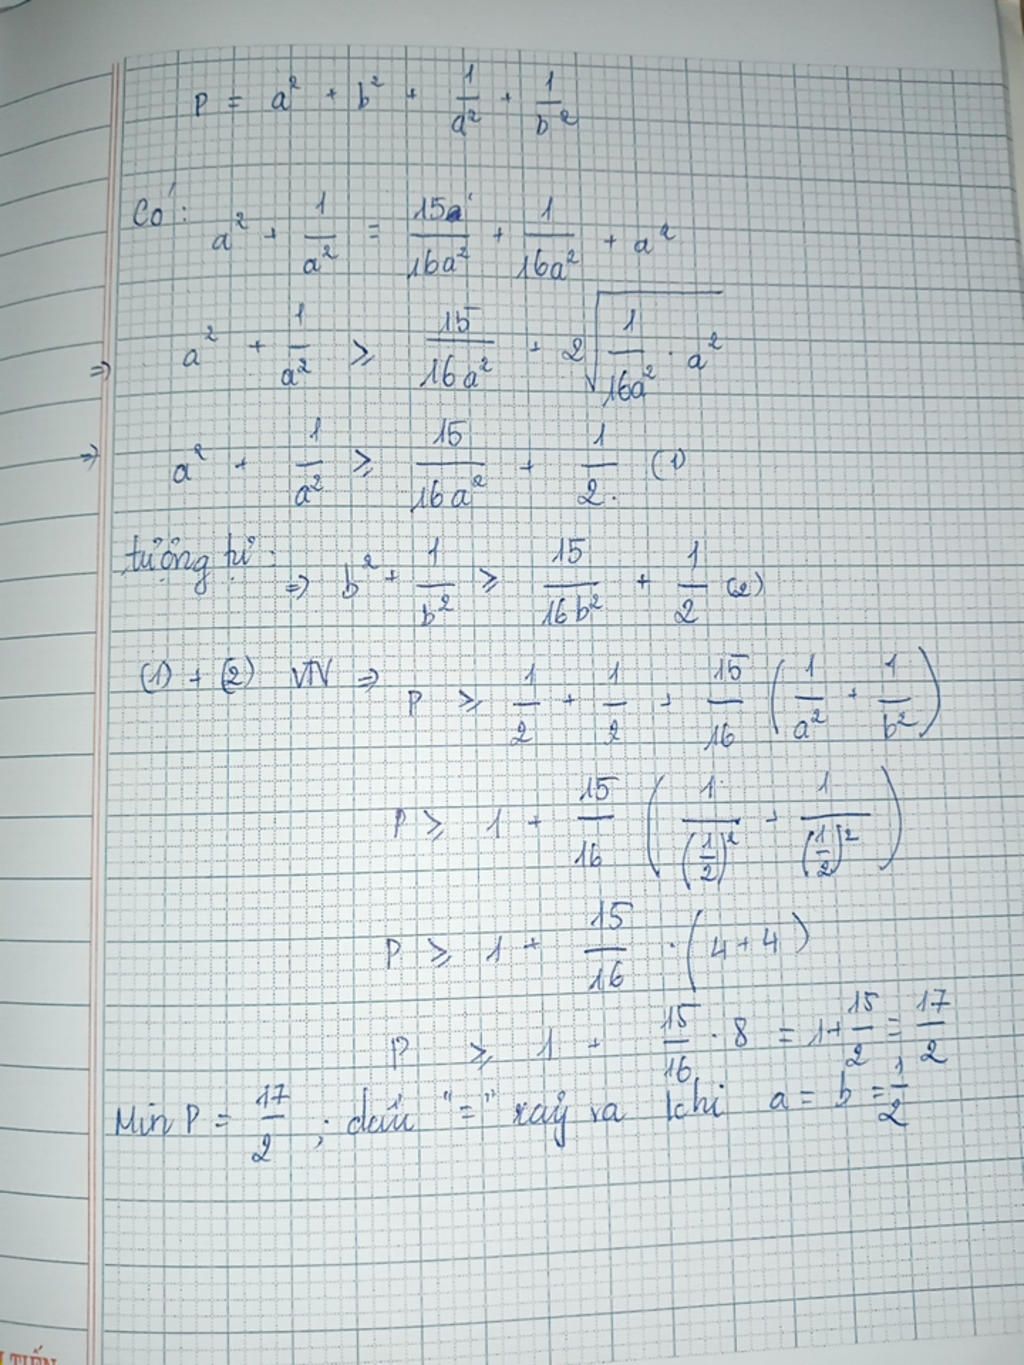 P = a² + b² + 1/a² + 1/b²
Có: a² + 1/a² = 15/16a² + 1/16a² + a²
⇒ a² + 1/a² ⩾ 15/16a² + 2√(1/16a² · a²)
⇒ a² + 1/a² ⩾ 15/16a² + 1/2. (1)
tương tự: ⇒ b² + 1/b² ⩾ 15/16b² + 1/2 (2)
(1) + (2) VTV ⇒ P ⩾ 1/2 + 1/2 + 15/16 (1/a² + 1/b²)
P ⩾ 1 + 15/16 (1/(1/2)² + 1/(1/2)²)
P ⩾ 1 + 15/16 · (4 + 4)
P ⩾ 1 + 15/16 · 8 = 1 + 15/2 = 17/2
Min P = 17/2 ; dấu "=" xảy ra khi a = b = 1/2
TIẾN